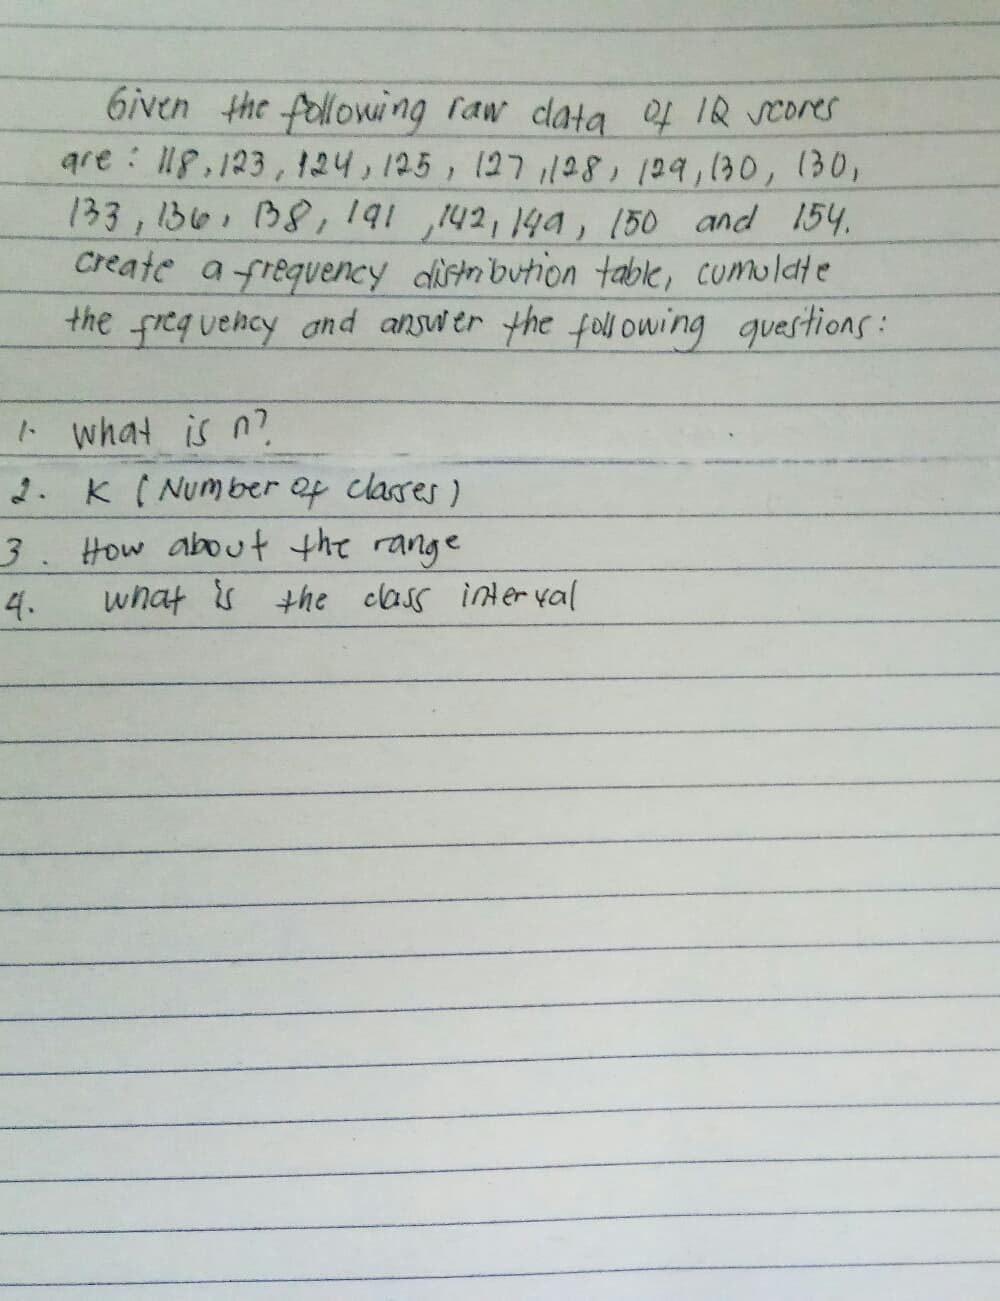 Given the following raw data of IQ scores
are : 118, 123, 124, 125, 127, 128, 129, 130, 130,
133, 136, 138, 141, 142, 149, 150 and 154.
create a frequency distribution table, cumulate
the frequency and answer the following questions:
1. What is n?
2. K ( Number of classes )
3. How about the range
4. what is the class interval